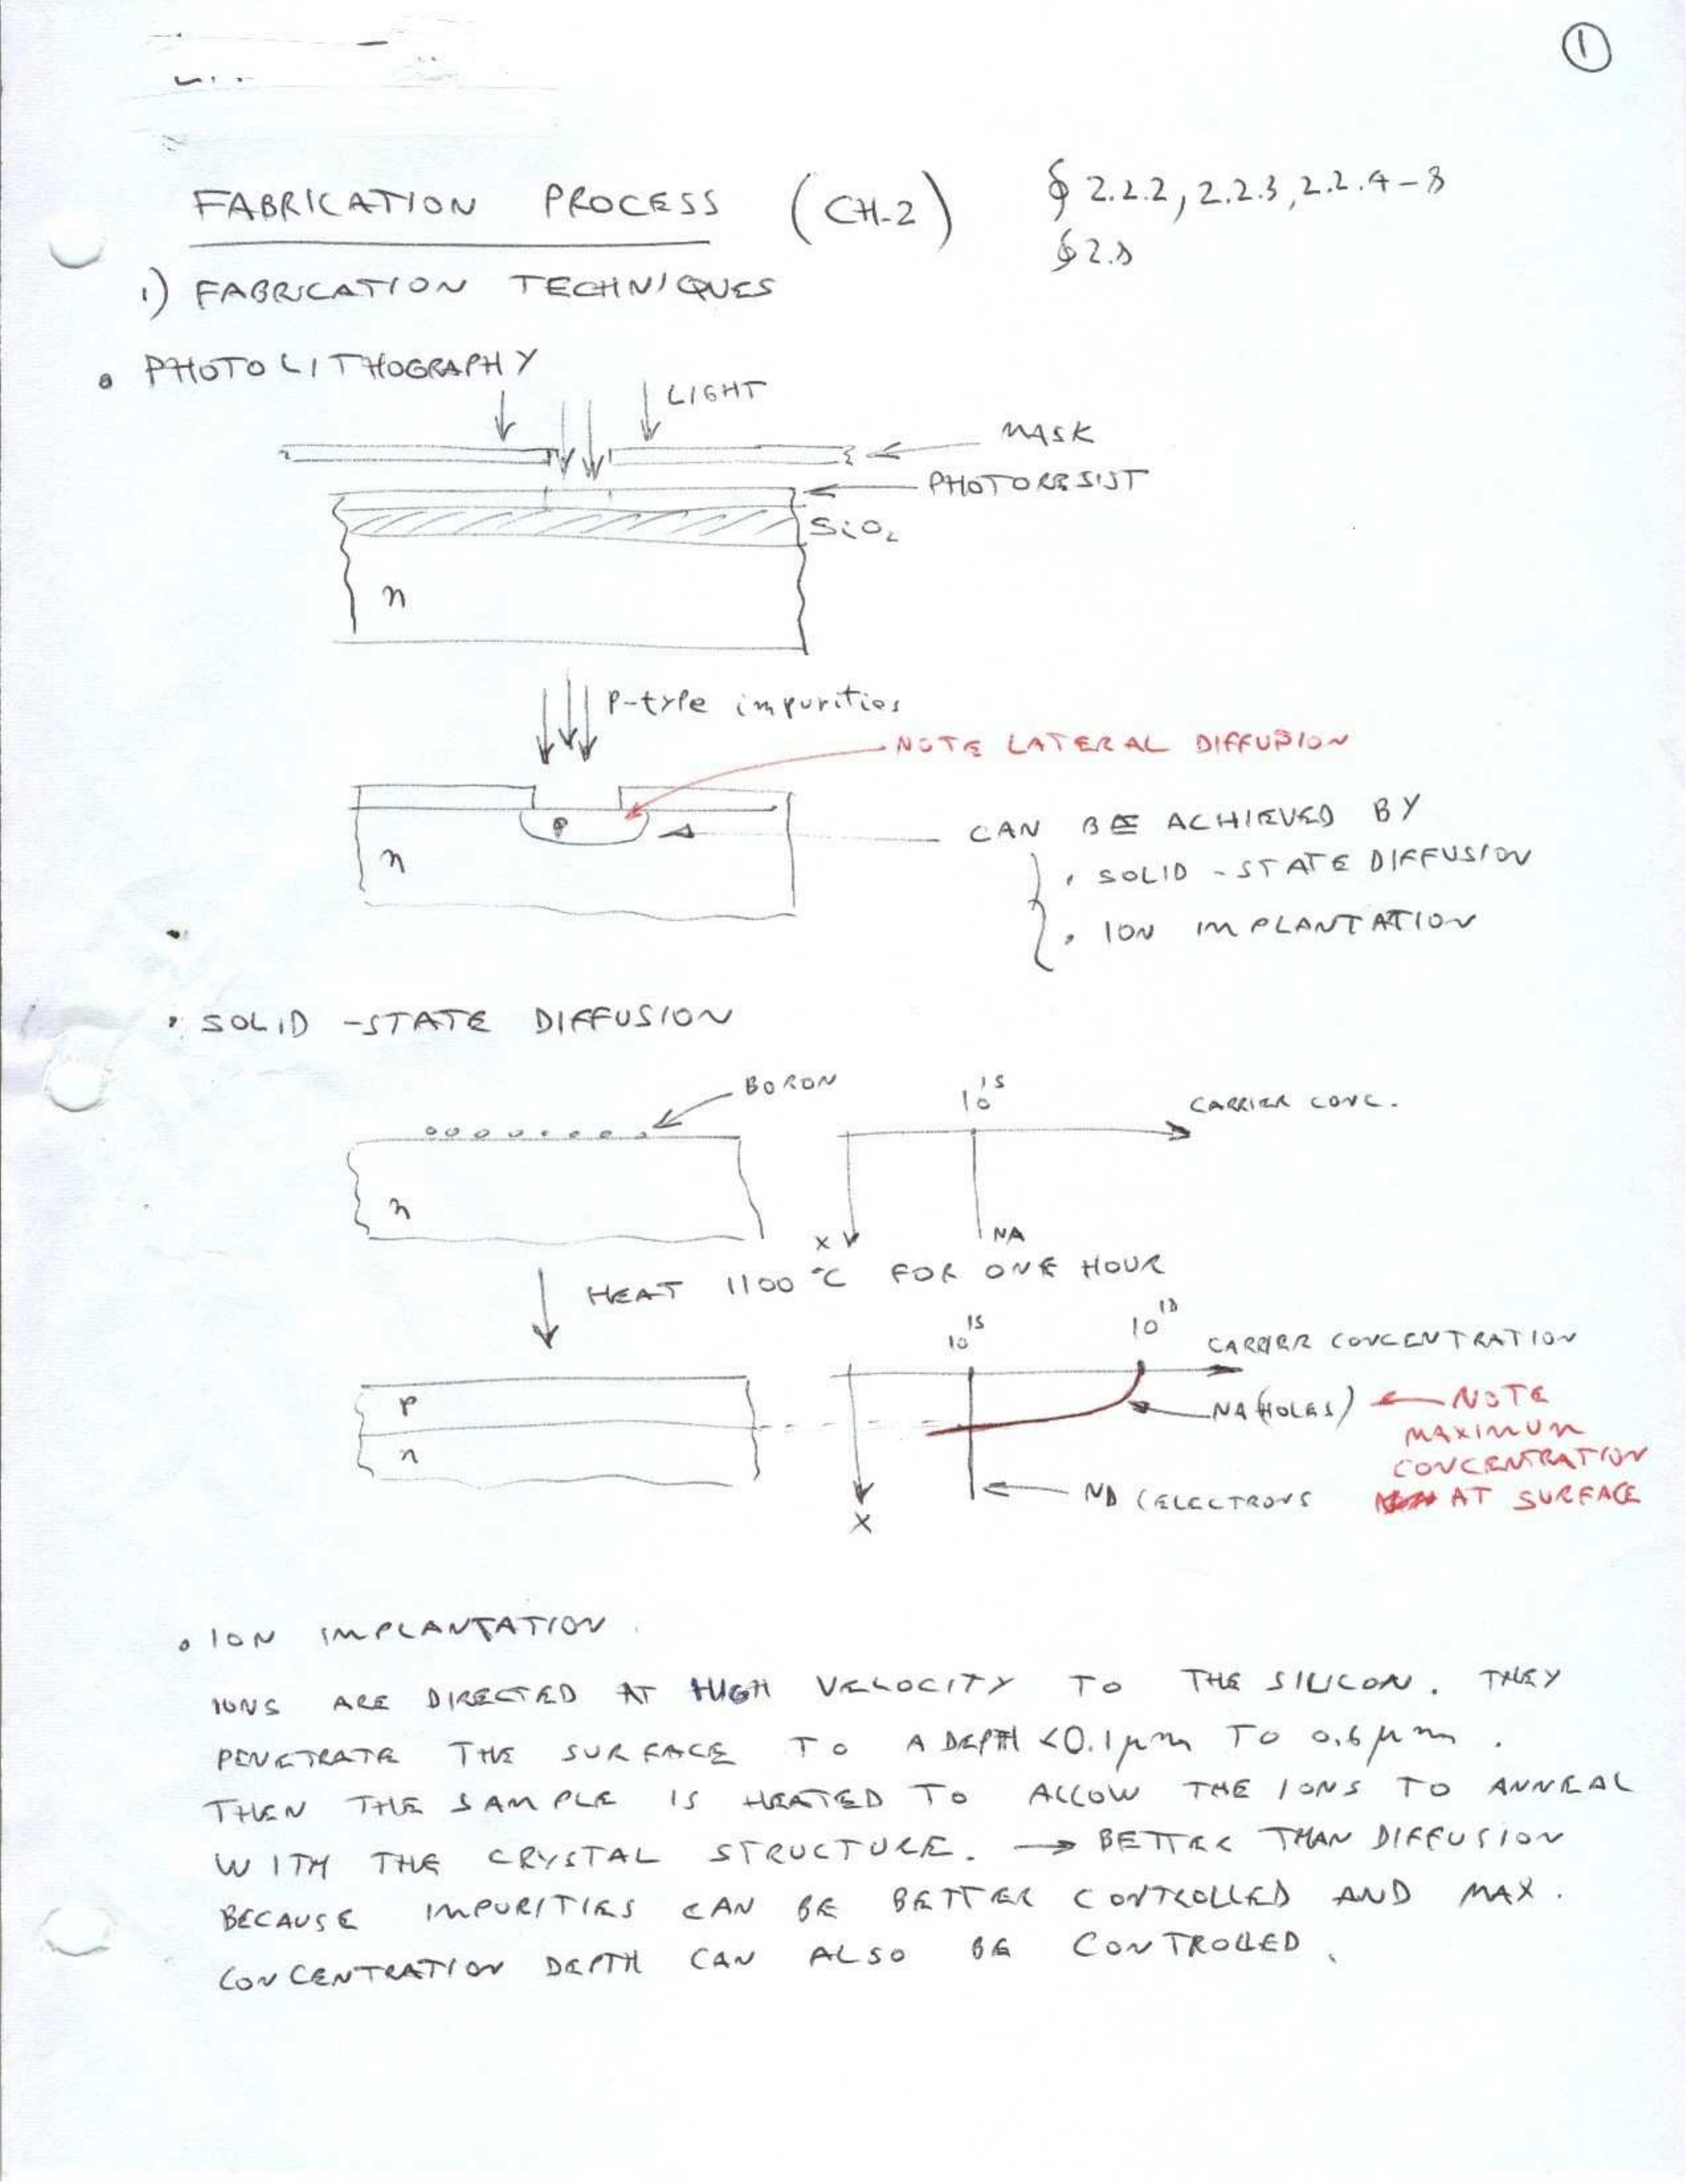 1
FABRICATION PROCESS (CH-2) § 2.2.2, 2.2.3, 2.2.4-8
§ 2.8
1) FABRICATION TECHNIQUES
• PHOTOLITHOGRAPHY
LIGHT
MASK
PHOTORESIST
SiO2
n
P-type impurities
NOTE LATERAL DIFFUSION
P
n
CAN BE ACHIEVED BY
• SOLID-STATE DIFFUSION
• ION IMPLANTATION
• SOLID-STATE DIFFUSION
BORON
10^15
CARRIER CONC.
n
X
NA
HEAT 1100 °C FOR ONE HOUR
10^15
10^18
CARRIER CONCENTRATION
P
n
NA (HOLES) ← NOTE
MAXIMUM
CONCENTRATION
AT SURFACE
ND (ELECTRONS
X
• ION IMPLANTATION.
IONS ARE DIRECTED AT HIGH VELOCITY TO THE SILICON. THEY
PENETRATE THE SURFACE TO A DEPTH <0.1 μm TO 0.6 μm.
THEN THE SAMPLE IS HEATED TO ALLOW THE IONS TO ANNEAL
WITH THE CRYSTAL STRUCTURE. → BETTER THAN DIFFUSION
BECAUSE IMPURITIES CAN BE BETTER CONTROLLED AND MAX.
CONCENTRATION DEPTH CAN ALSO BE CONTROLLED.